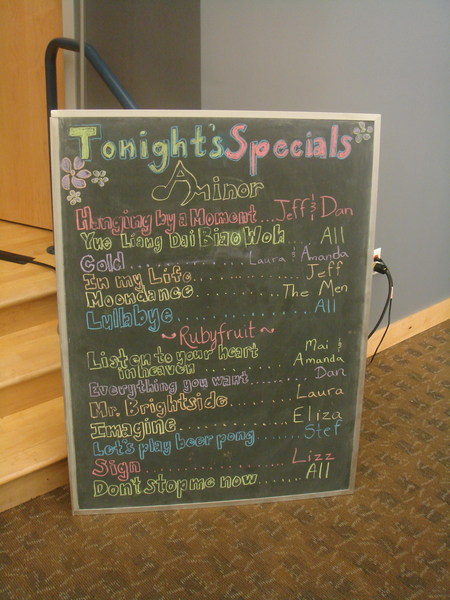 Tonight's Specials
A minor
Hanging by a Moment...Jeff & Dan
Yue Liang Dai Biao Woh...All
Cold..........Laura & Amanda
In my Life..........Jeff
Moondance..........The Men
Lullabye..........All
~Rubyfruit~
Listen to your heart Mai &
in heaven.......Amanda
Everything you want.......Dan
Mr. Brightside.......Laura
Imagine..........Eliza
Let's play beer pong.....Stef
Sign..........Lizz
Don't stop me now......All